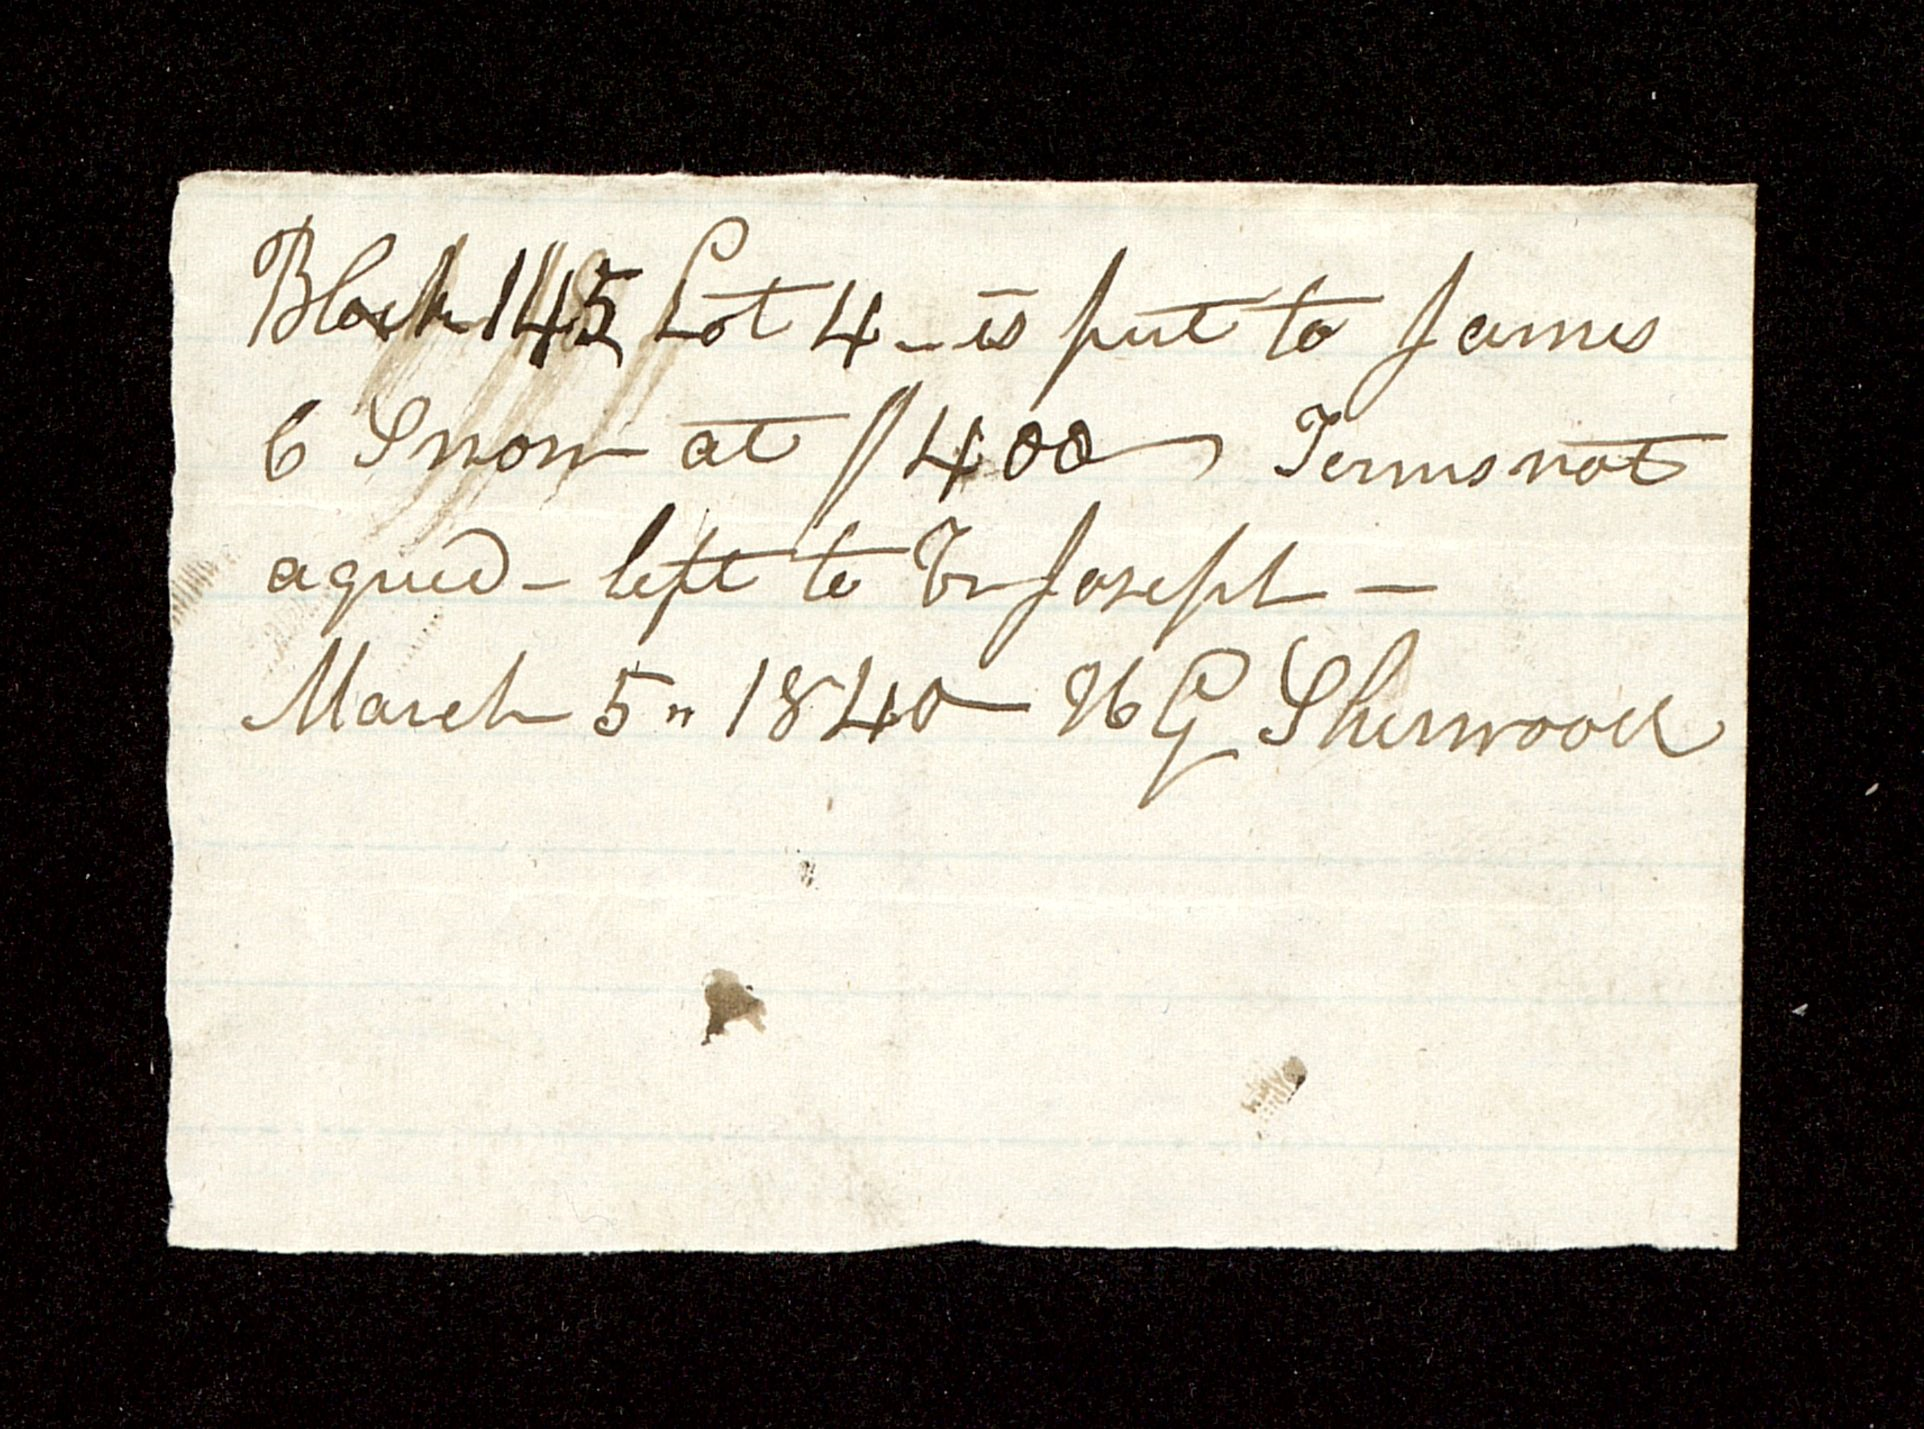 Block 145 Lot 4 – is put to James
C Snow at $400 Terms not
agreed – left to Br Joseph –
March 5" 1840 H G Sherwood